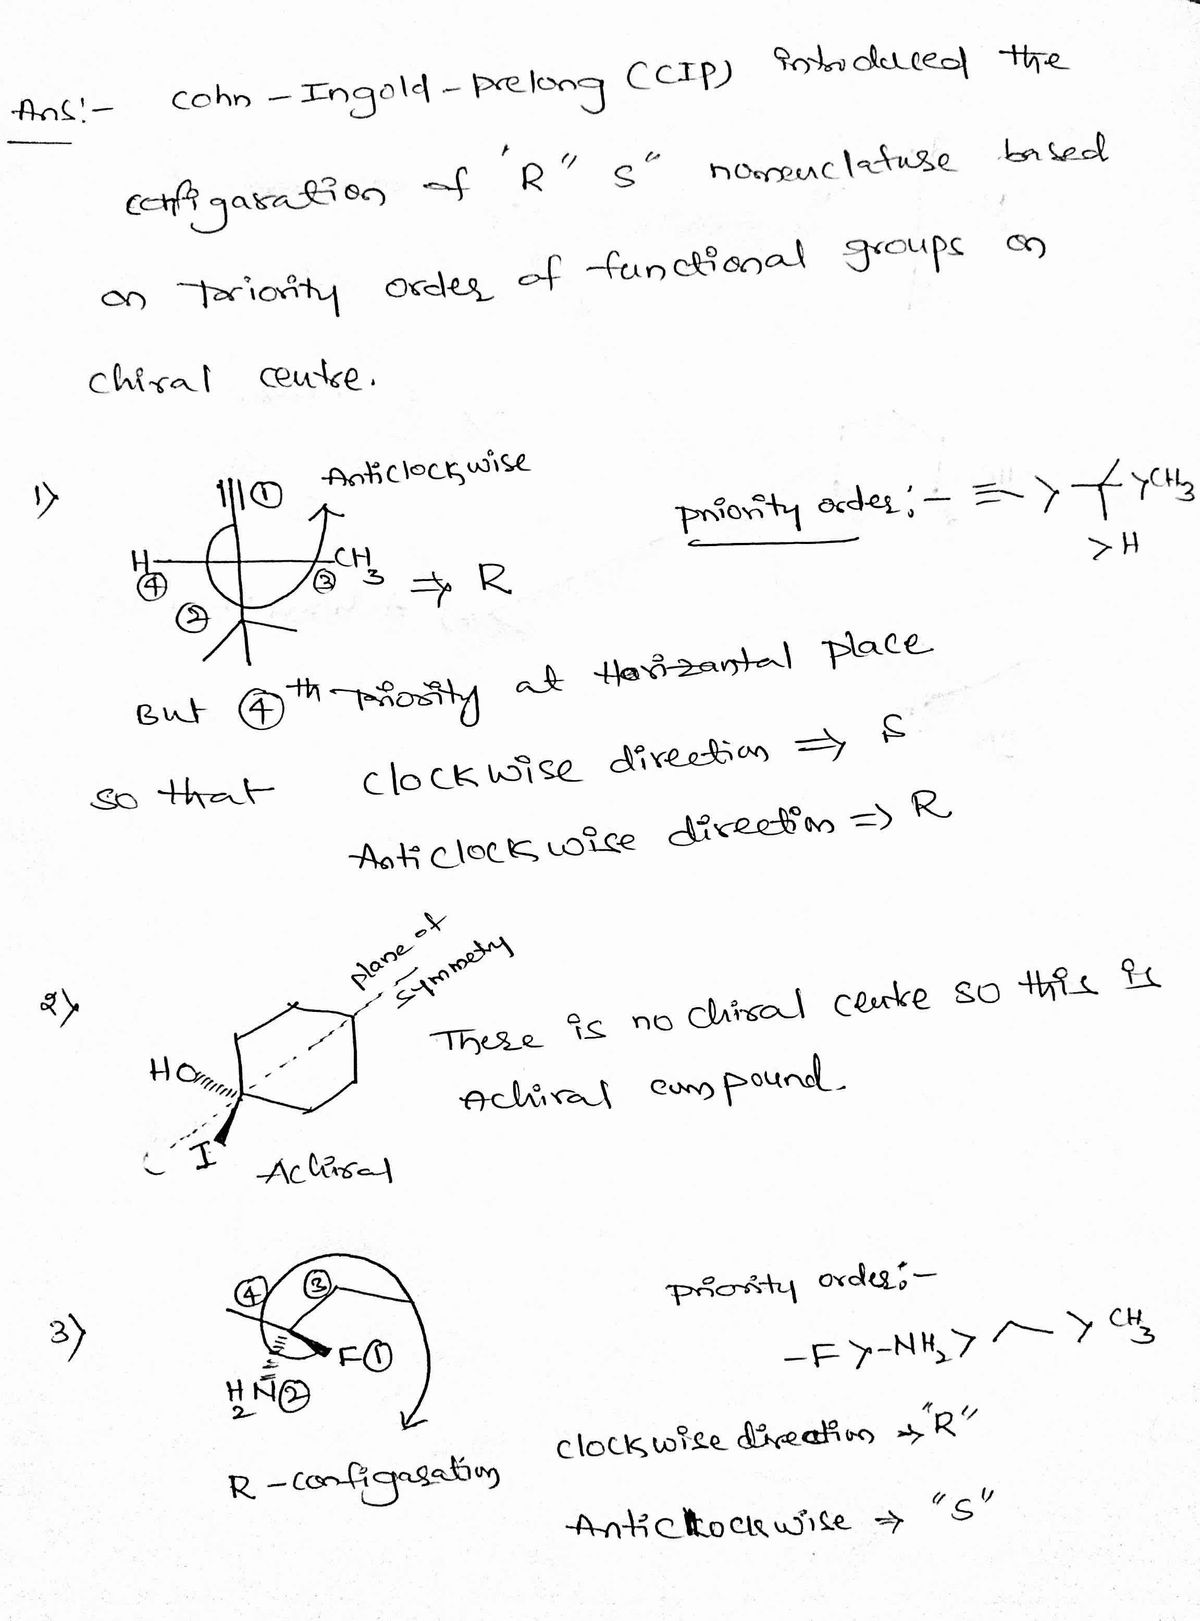 Ans:- Cohn-Ingold-prelong (CIP) introduced the
configaration of 'R" S" nomenclature based
on priority order of functional groups on
chiral centre.
1) Anticlockwise
①
H CH3
④ ③ ⇒ R
②
priority order:- > > CH3
> H
But ④th priority at Horizantal place
so that clockwise direction ⇒ S
Anticlockwise direction => R
2) plane of
symmetry
There is no chiral centre so this is
HO
Achiral compound.
I
Achiral
3) ④ ③
F①
H2N②
R-configaration
priority order:-
-F > -NH2 > > CH3
clockwise direction ⇒ "R"
Anticlockwise ⇒ "S"